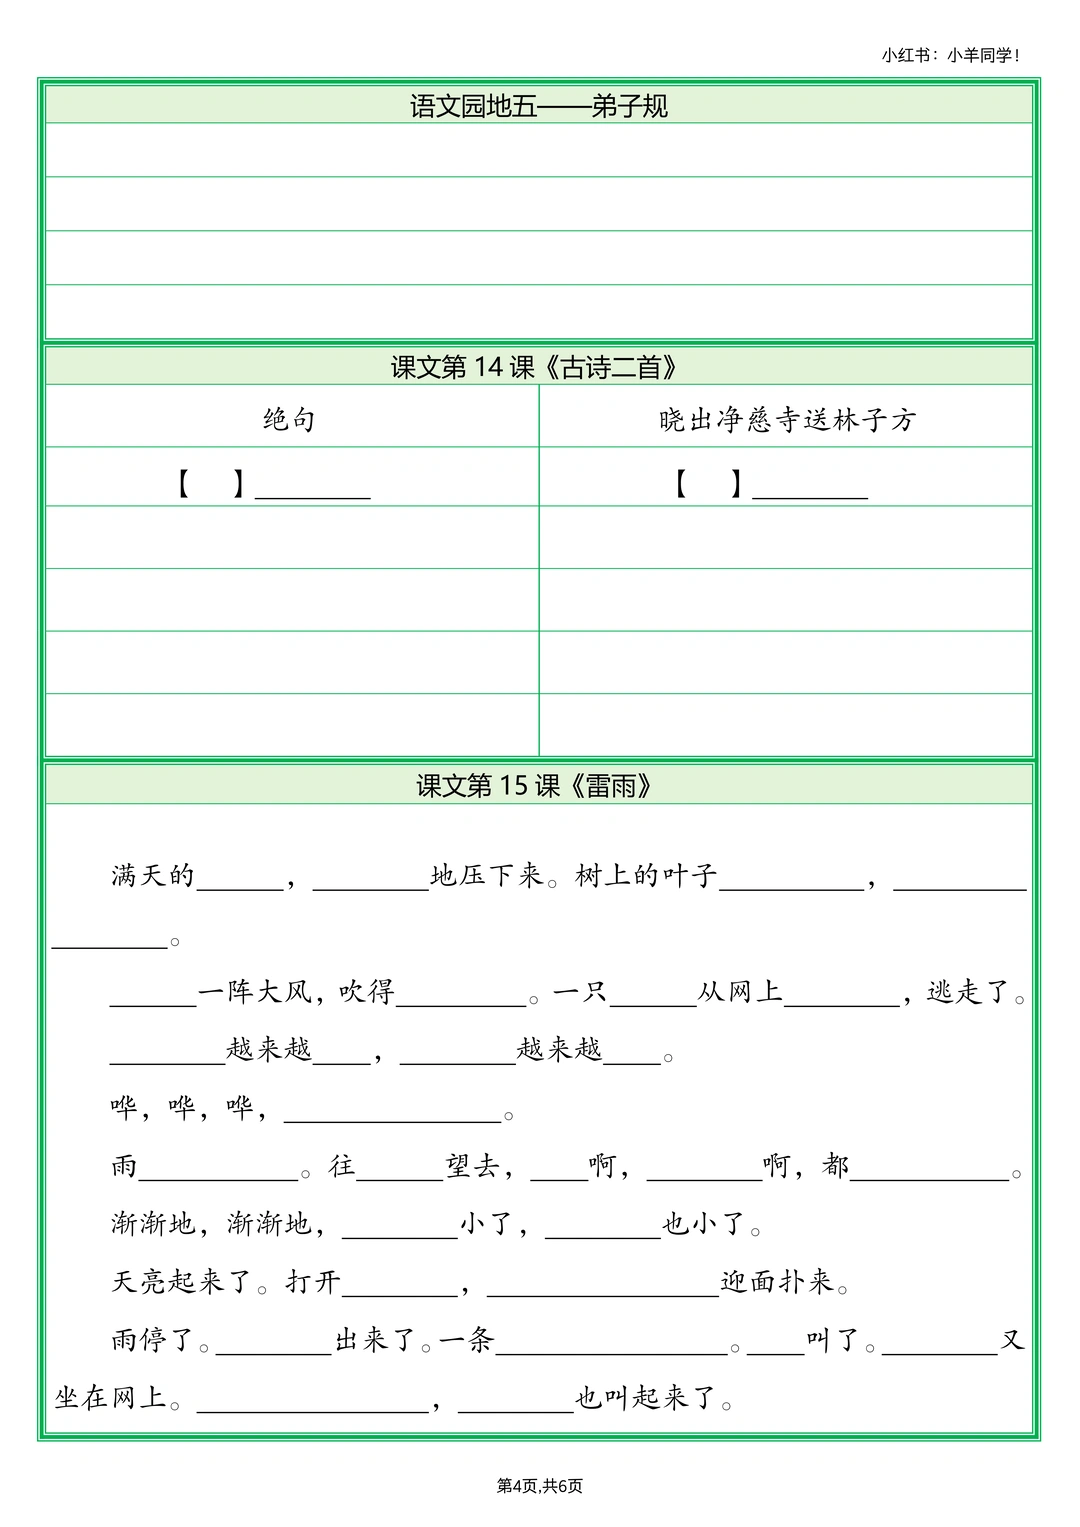 小红书：小羊同学！
语文园地五——弟子规
课文第 14 课《古诗二首》
绝句
晓出净慈寺送林子方
【 】________
【 】________
课文第 15 课《雷雨》
满天的______，________地压下来。树上的叶子__________，_________
________。
______一阵大风，吹得_________。一只______从网上________，逃走了。
________越来越____，________越来越____。
哗，哗，哗，_______________。
雨___________。往______望去，____啊，________啊，都___________。
渐渐地，渐渐地，________小了，________也小了。
天亮起来了。打开________，________________迎面扑来。
雨停了。________出来了。一条________________。____叫了。________又
坐在网上。________________，________也叫起来了。
第4页,共6页